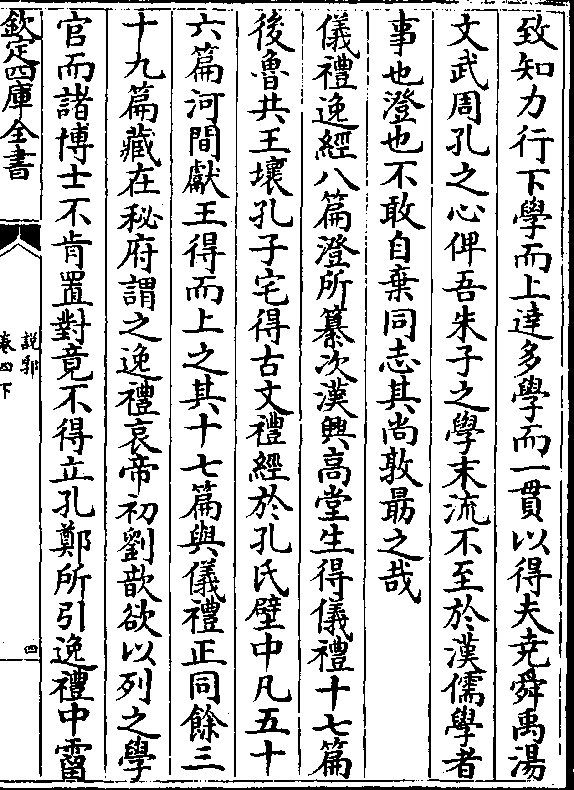 致知力行下學而上達多學而一貫以得夫堯舜禹湯
文武周孔之心俾吾朱子之學末流不至於漢儒學者
事也澄也不敢自棄同志其尚敦勗之哉
儀禮逸經八篇澄所纂次漢興高堂生得儀禮十七篇
後魯共王壞孔子宅得古文禮經於孔氏壁中凡五十
六篇河間獻王得而上之其十七篇與儀禮正同餘三
十九篇藏在秘府謂之逸禮哀帝初劉歆欲以列之學
官而諸博士不肯置對竟不得立孔鄭所引逸禮中霤
欽定四庫全書
說郛
卷四下
四